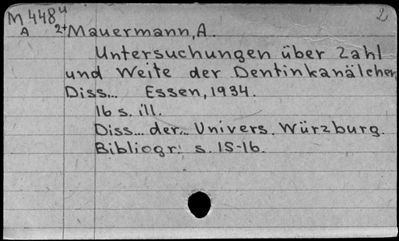 M 448 u 2
A 2+ Mauermann, A.
Untersuchungen über Zahl
und Weite der Dentinkanälchen
Diss... Essen, 1934.
16 s. ill.
Diss... der... Univers. Würzburg.
Bibliogr: s. 15-16.